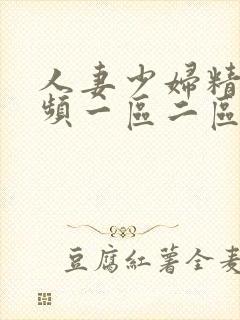 人妻少婦精
頻一區二區
豆腐紅薯全麦